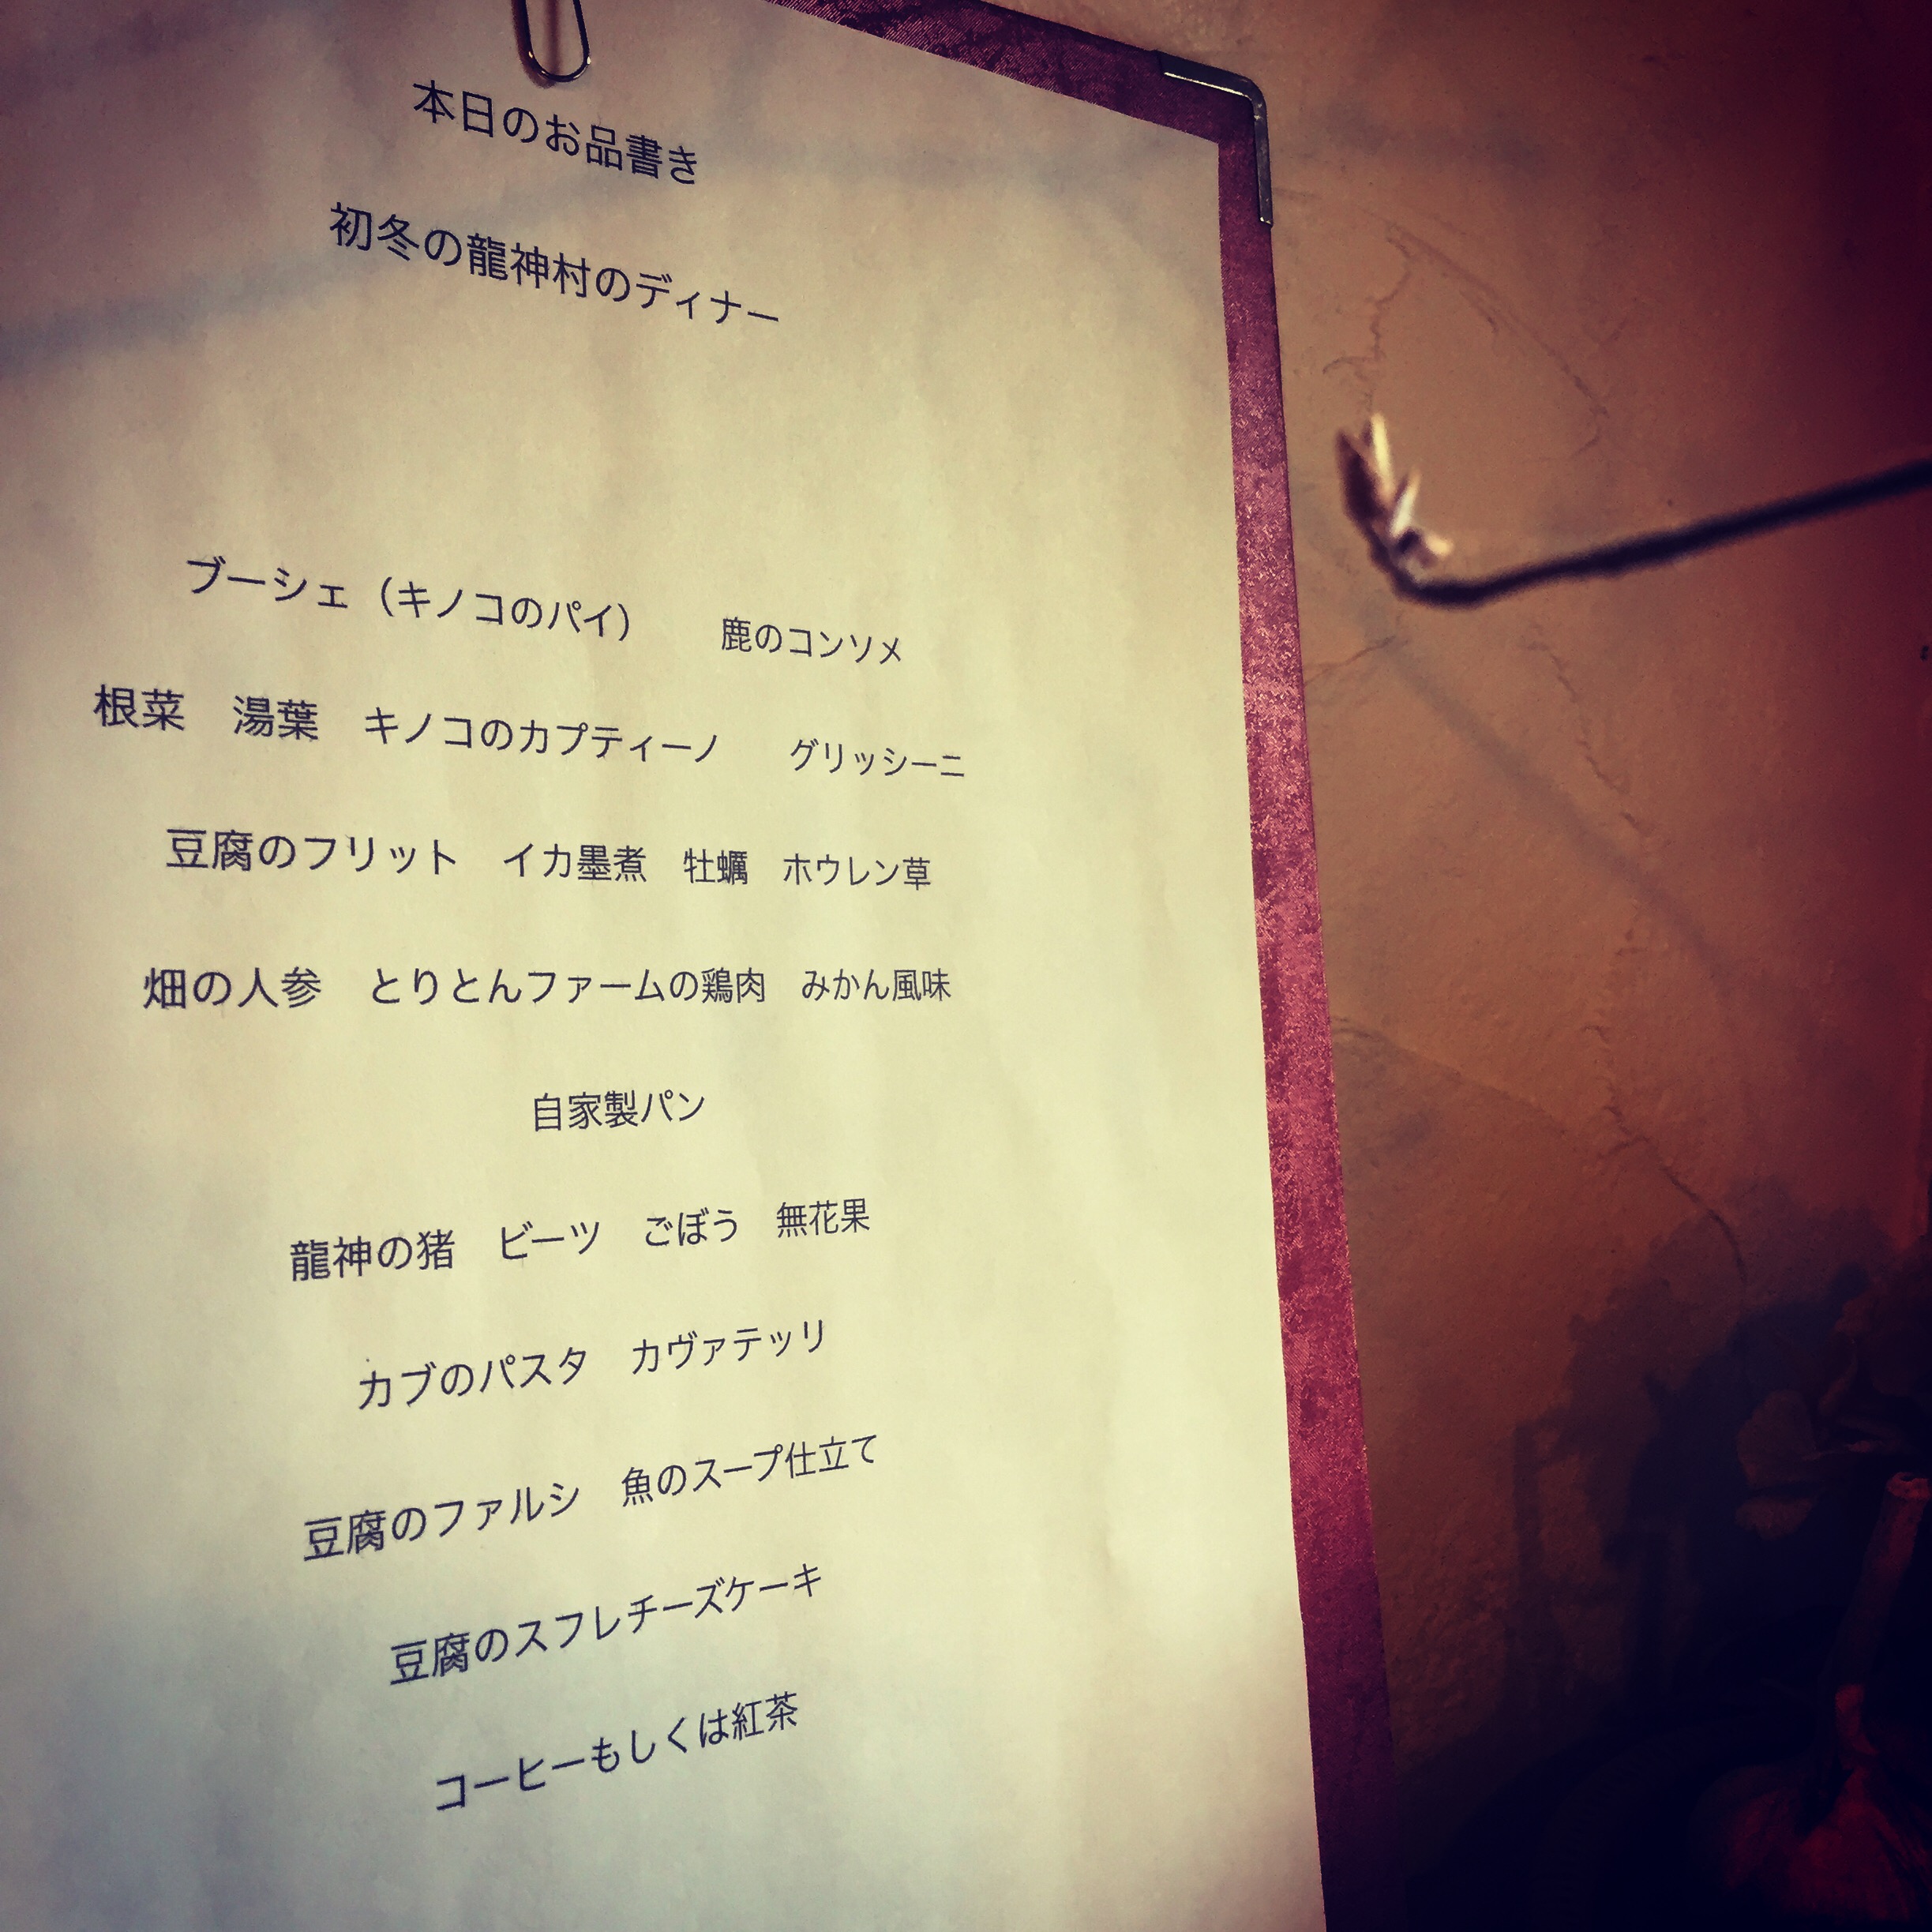 本日のお品書き
初冬の龍神村のディナー
ブーシェ（キノコのパイ）　鹿のコンソメ
根菜　湯葉　キノコのカプティーノ　グリッシーニ
豆腐のフリット　イカ墨煮　牡蠣　ホウレン草
畑の人参　とりとんファームの鶏肉　みかん風味
自家製パン
龍神の猪　ビーツ　ごぼう　無花果
カブのパスタ　カヴァテッリ
豆腐のファルシ　魚のスープ仕立て
豆腐のスフレチーズケーキ
コーヒーもしくは紅茶